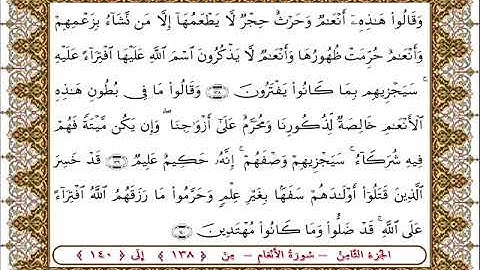 وَقَالُوا۟ هَـٰذِهِۦٓ أَنْعَـٰمٌ وَحَرْثٌ حِجْرٌ لَّا يَطْعَمُهَآ إِلَّا مَن نَّشَآءُ بِزَعْمِهِمْ
وَأَنْعَـٰمٌ حُرِّمَتْ ظُهُورُهَا وَأَنْعَـٰمٌ لَّا يَذْكُرُونَ ٱسْمَ ٱللَّهِ عَلَيْهَا ٱفْتِرَآءً عَلَيْهِ
ۚ سَيَجْزِيهِم بِمَا كَانُوا۟ يَفْتَرُونَ ﴿١٣٨﴾ وَقَالُوا۟ مَا فِى بُطُونِ هَـٰذِهِ
ٱلْأَنْعَـٰمِ خَالِصَةٌ لِّذُكُورِنَا وَمُحَرَّمٌ عَلَىٰٓ أَزْوَٰجِنَا ۖ وَإِن يَكُن مَّيْتَةً فَهُمْ
فِيهِ شُرَكَآءُ ۚ سَيَجْزِيهِمْ وَصْفَهُمْ ۚ إِنَّهُۥ حَكِيمٌ عَلِيمٌ ﴿١٣٩﴾ قَدْ خَسِرَ
ٱلَّذِينَ قَتَلُوٓا۟ أَوْلَـٰدَهُمْ سَفَهًۢا بِغَيْرِ عِلْمٍ وَحَرَّمُوا۟ مَا رَزَقَهُمُ ٱللَّهُ ٱفْتِرَآءً
عَلَى ٱللَّهِ ۚ قَدْ ضَلُّوا۟ وَمَا كَانُوا۟ مُهْتَدِينَ ﴿١٤٠﴾
الجزء الثَّامِنُ – سُورَةُ الأَنْعَام – مِنْ ﴿ ١٣٨ ﴾ إِلَى ﴿ ١٤٠ ﴾